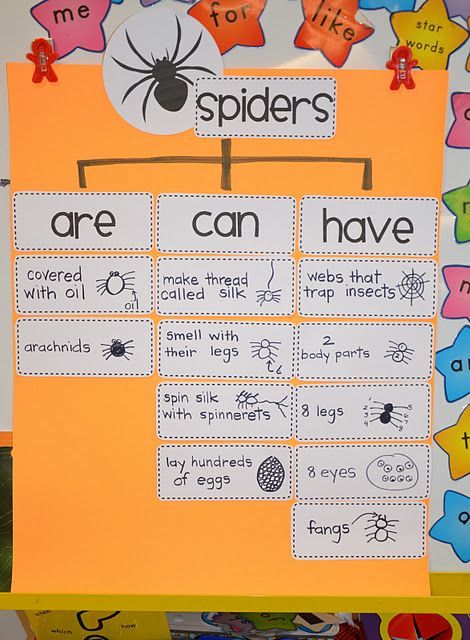 me
for
like
star
words
spiders
are
can
have
covered
with oil
oil
arachnids
make thread
called silk
smell with
their legs
spin silk
with spinnerets
lay hundreds
of eggs
webs that
trap insects
2
body parts
8 legs
1
2
3
4
5
6
7
8
8 eyes
fangs
which
how